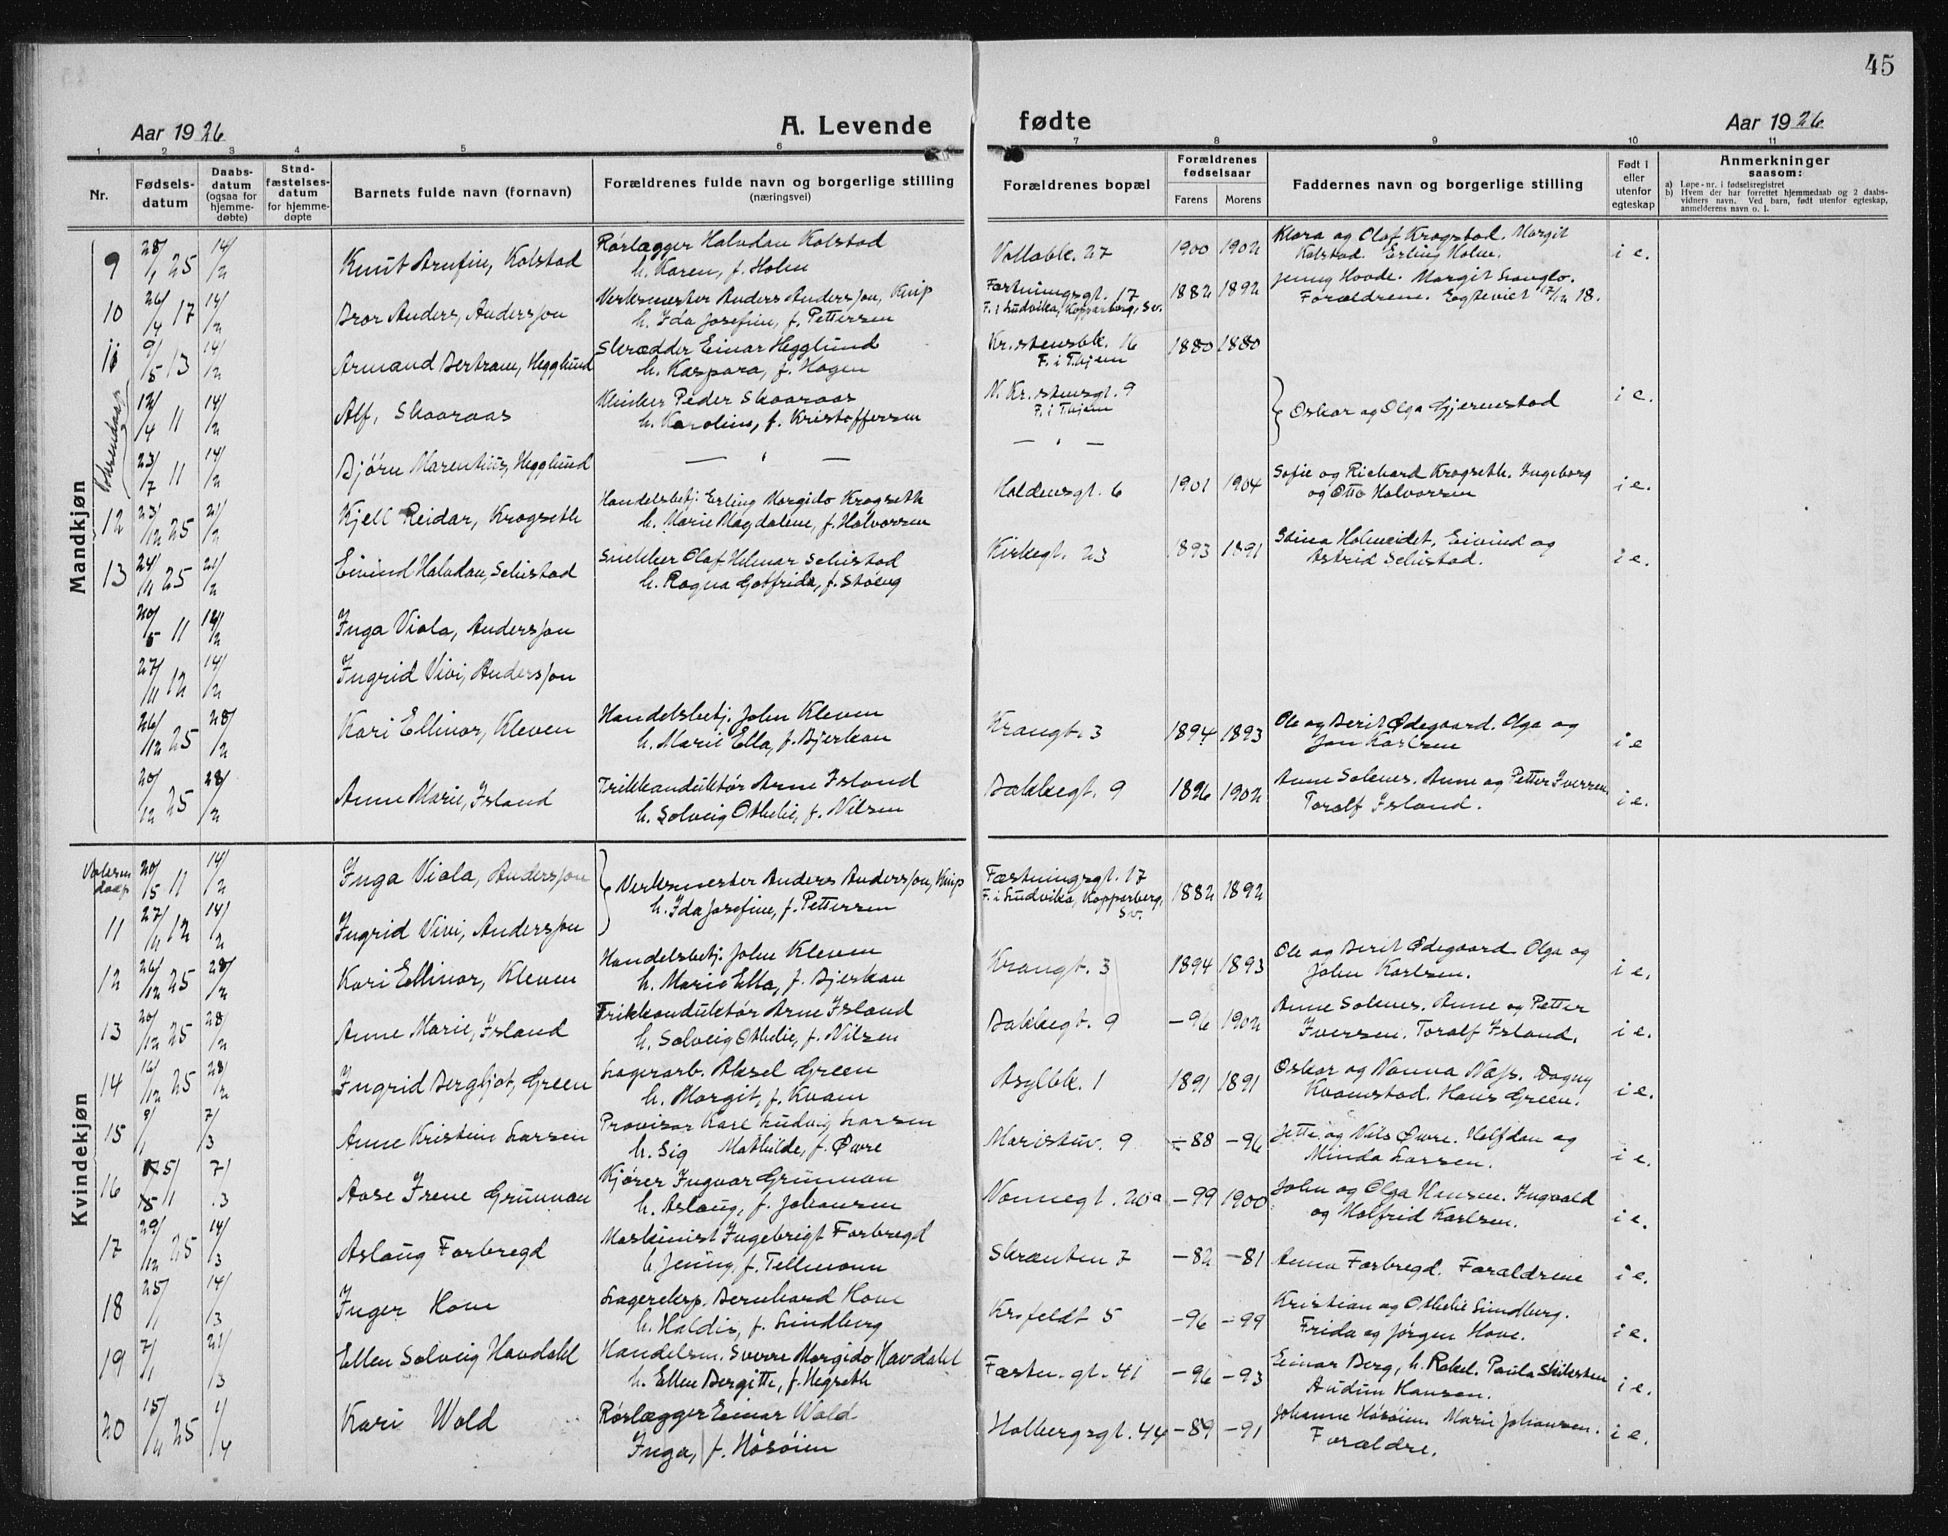 45
Aar 1926 A. Levende fødte Aar 1926
1 2 3 4 5 6 7 8 9 10 11
Nr. Fødselsdatum Daabsdatum (ogsaa for hjemmedøbte) Stadfæstelsesdatum for hjemmedøpte Barnets fulde navn (fornavn) Forældrenes fulde navn og borgerlige stilling (næringsvei) Forældrenes bopæl Forældrenes fødselsaar Farens Morens Faddernes navn og borgerlige stilling Født i eller utenfor egteskap Anmerkninger saasom:
a) Løpe-nr. i fødselsregistret
b) Hvem der har forrettet hjemmedaab og 2 daabsvidners navn. Ved barn, født utenfor egteskap, anmelderens navn o. l.
Mandkjøn
9 28/1 25 14/2 Knut Arnfin, Kolstad Rørlægger Halvdan Kolstad Vollabk. 27 1900 1902 Klara og Olaf Krogstad. Margit i e.
h. Karen, f. Holm Kolstad. Erling Holm.
10 26/4 17 14/2 Bror Anders, Andersson Verksmester Anders Andersson, Knip Fæstningsgt. 17 1882 1892 Jenny Hoode. Margit Langlo.
h. Ida Josefine, f. Pettersen F. i Ludvika, Kopparberg, Sv. Forældrene. Egteviet 17/12 18.
11 9/5 13 14/2 Armand Bertram, Hegglund Skrædder Einar Hegglund Kr.stensbk. 16 1880 1880
h. Kaspara, f. Hagen F. i Thjem
Voksendaap
12/4 11 14/2 Alf, Skaaraas Klinker Peder Skaaraas N. Kr.stensgt. 9 Oskar og Olga Gjerenstad i e.
h. Karoline, f. Kristoffersen F. i Thjem
23/7 11 14/2 Bjørn Marentius, Hegglund — " — — " —
12 23/12 25 21/2 Kjell Reidar, Krogseth Handelsbetj. Erling Margido Krogseth Haldensgt. 6 1901 1904 Sofie og Richard Krogseth. Ingeborg i e.
h. Marie Magdalene, f. Halvorsen og Otto Halvorsen
13 24/11 25 21/2 Eivind Halvdan, Selistad Snekker Olaf Hilmar Selistad Kirkegt. 23 1893 1891 Stina Holmeidet, Eivind og i e.
h. Ragna Gotfrida, f. Støeng Astrid Selistad.
20/5 11 14/2 Inga Viola, Andersson
27/11 12 14/2 Ingrid Vivi, Andersson
26/12 25 28/2 Kari Ellinor, Kleven Handelsbetj. John Kleven Krangt. 3 1894 1893 Ole og Berit Ødegaard. Olga og i e
h. Marie Ella, f. Bjerkan Jon Karlsen
20/12 25 28/2 Anne Marie, Island Trikkonduktør Arne Island Bakkegt. 9 1896 1902 Anne Solenes. Anne og Petter Iversen. i e.
h. Solveig Othelie, f. Nilsen Toralf Island.
Kvindekjøn
Voksendaap 20/5 11 14/2 Inga Viola, Andersson Verksmester Anders Andersson, Knip Fæstningsgt. 17 1882 1892
h. Ida Josefine, f. Pettersen F. i Ludvika, Kopparberg, Sv.
11 27/11 12 14/2 Ingrid Vivi, Andersson
12 26/12 25 28/2 Kari Ellinor, Kleven Handelsbetj. John Kleven Krangt. 3 1894 1893 Ole og Berit Ødegaard. Olga og i e.
h. Marie Ella, f. Bjerkan John Karlsen.
13 20/12 25 28/2 Anne Marie, Island Trikkonduktør Arne Island Bakkegt. 9 –96 1902 Anne Solenes. Anne og Petter i e.
h. Solveig Othelie, f. Nilsen Iversen. Toralf Island.
14 12/12 25 28/2 Ingrid Bergljot, Green Lagerarb. Aksel Green Asylbk. 1 1891 1891 Oskar og Nanna Næss. Dagny i e.
h. Margit, f. Kvam Kvamstad. Hans Green.
15 9/1 7/3 Anne Kristine Larsen Provisor Karl Ludvig Larsen Maristuv. 9 –88 –96 Jette og Nils Øvre. Halfdan og i e.
h. Sig Mathilde, f. Øvre Minda Larsen.
16 7/3 Aase Irene Grünnan Kjører Ingvar Grünnan Nonnegt. 20a –99 1900 John og Olga Hansen. Ingvald i e.
h. Aslaug, f. Johansen og Halfrid Karlsen.
17 29/12 25 14/3 Aslaug Forbregd Maskinist Ingebrigt Forbregd Skrænten 7 –82 –81 Anna Forbregd. Forældrene i e.
h. Jenny, f. Tellmann
18 25/1 14/3 Inger Hove Lagereksp. Bernhard Hove Krsfeldt 5 –96 –99 Kristian og Othelie Lundberg. i e.
h. Haldis, f. Lundberg Frida og Jørgen Hove.
19 7/1 21/3 Ellen Solveig Havdahl Handelsm. Sverre Margido Havdahl Fæstn.gt. 41 –96 –93 Einar Berg, h. Rakel. Paula i e.
h. Ellen Bergitte, f. Hegseth Audun Hansen.
20 15/11 25 1/4 Kari Wold Rørlægger Einar Wold Holbergsgt. 44 –89 –91 Johanne Høsøien. Marie Johansen. i e.
Inga, f. Høsøien Forældre.